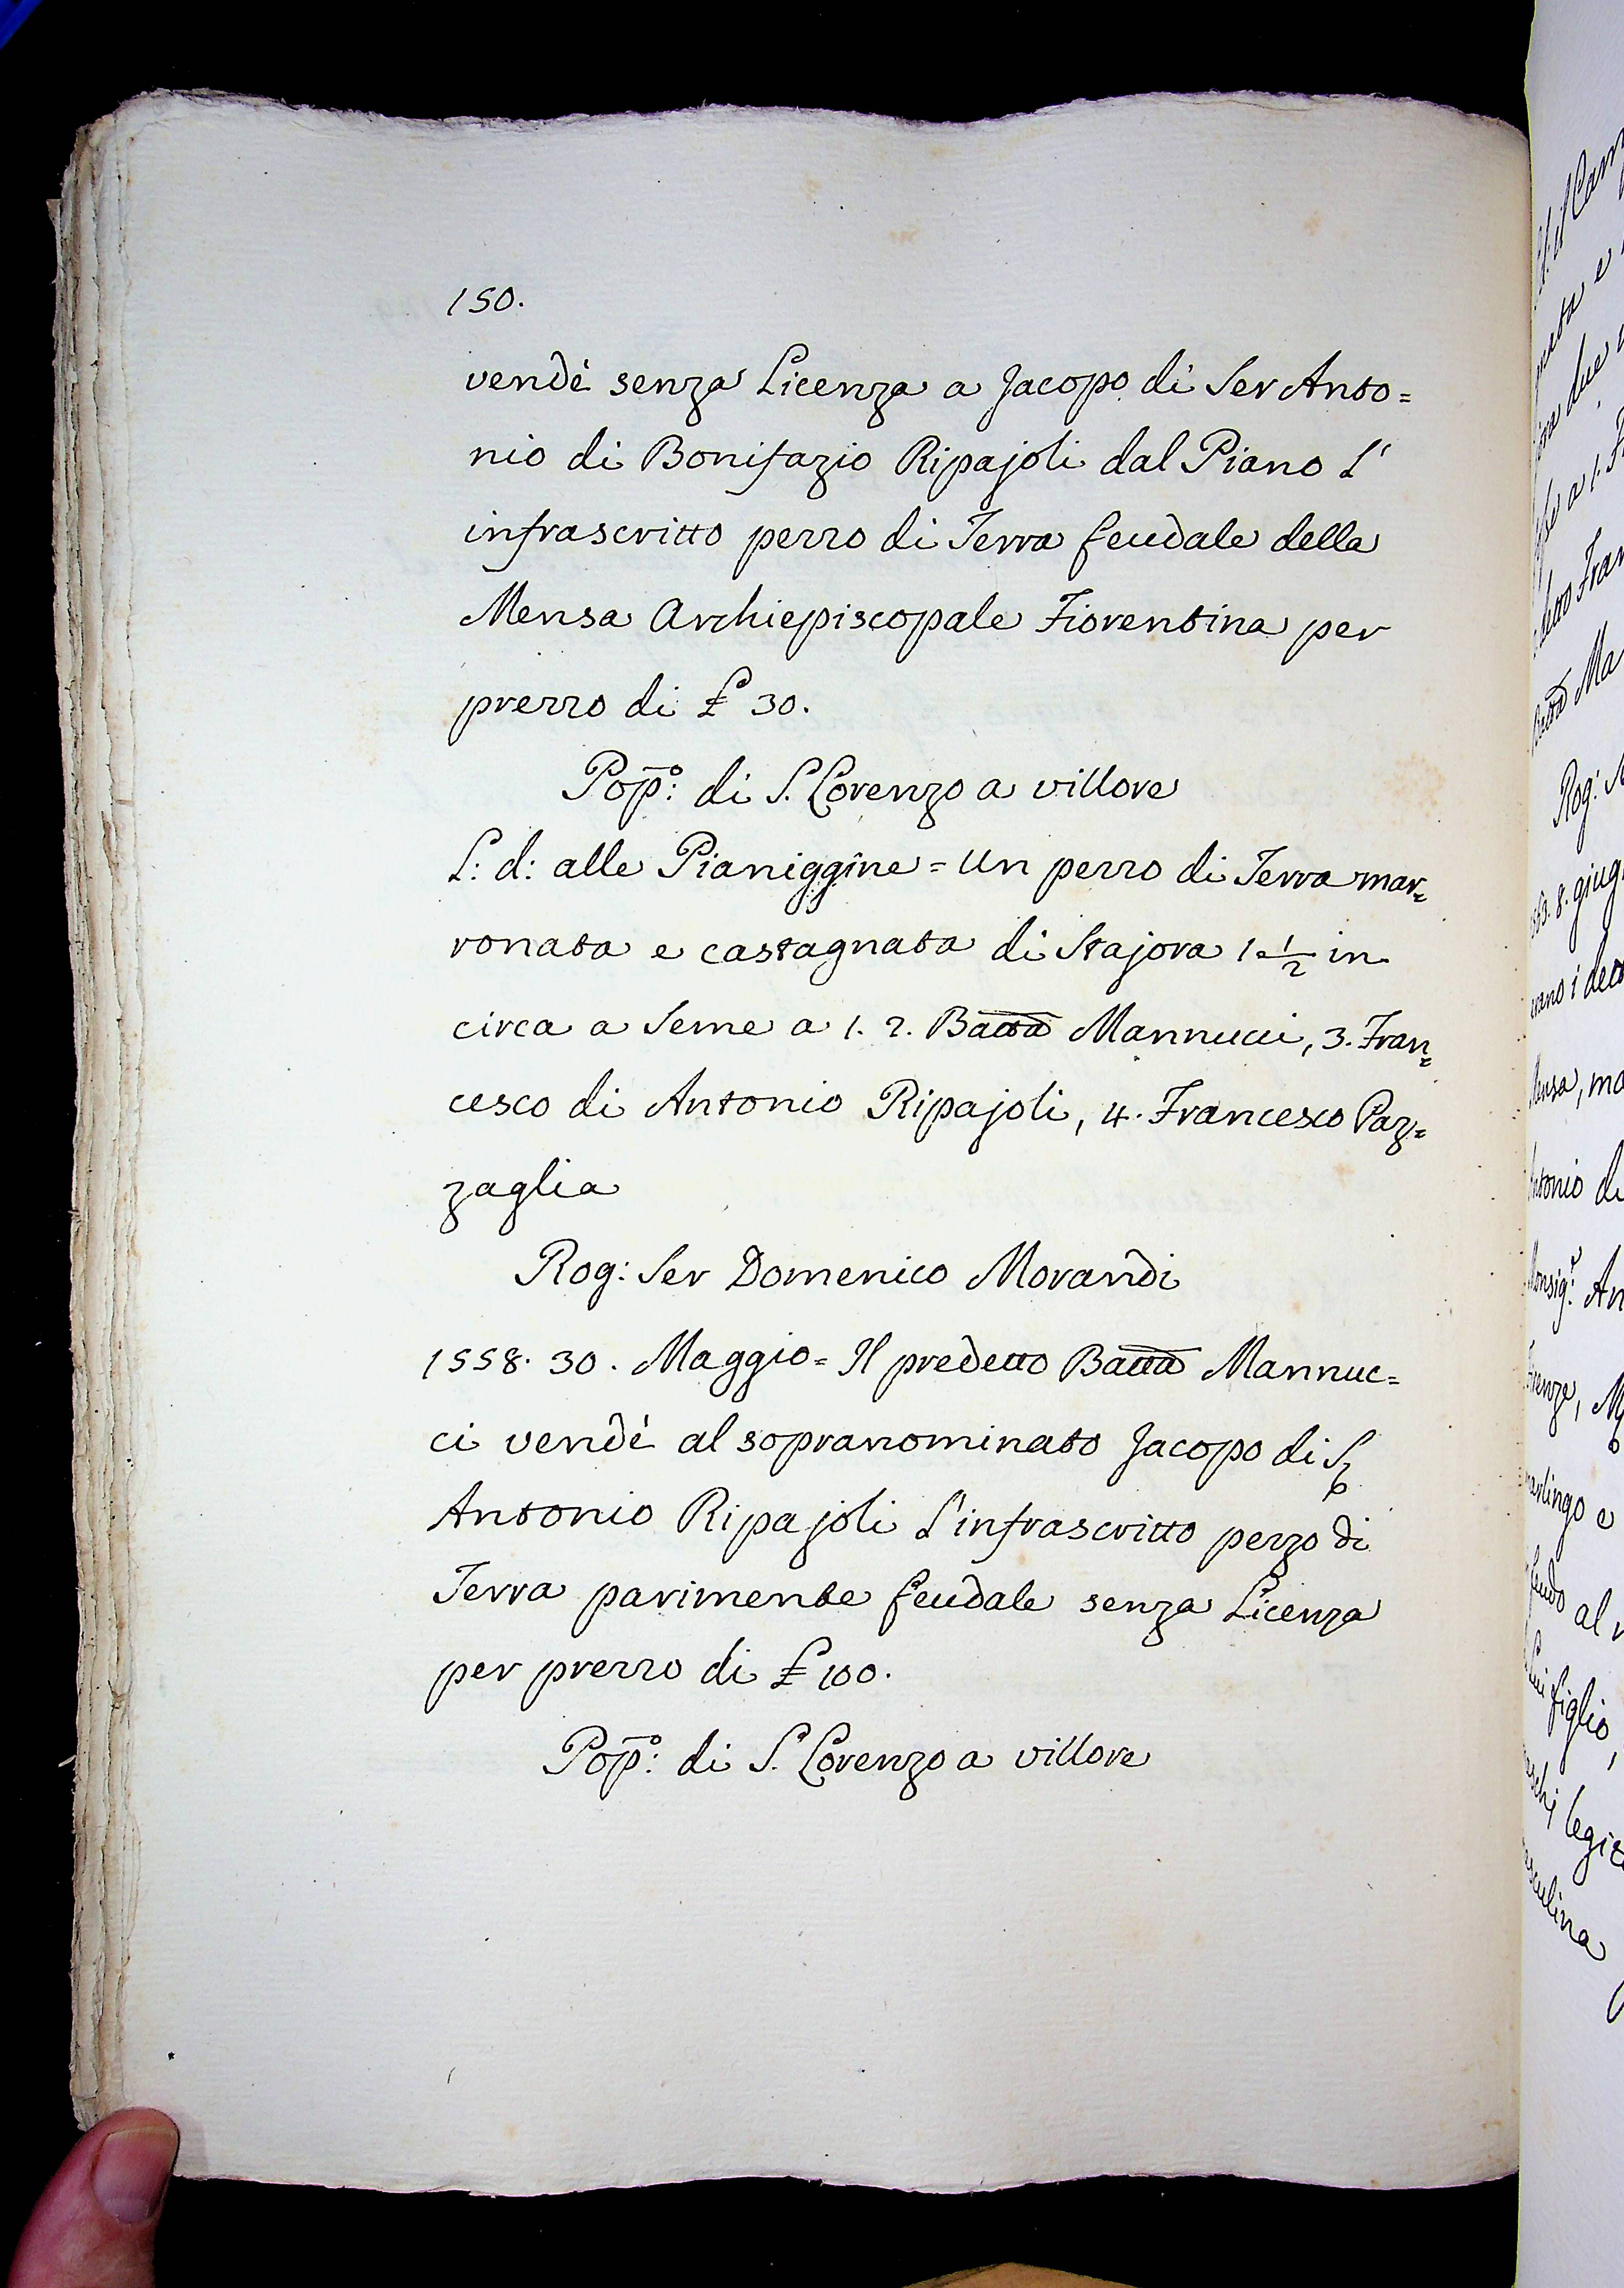 150.
vendè senza Licenza a Jacopo di Ser Anto=
nio di Bonifazio Ripajoli dal Piano L'
infrascritto pezzo di Terra feudale della
Mensa Archiepiscopale Fiorentina per
prezzo di £ 30.
Pop̄º: di S. Lorenzo a villore
L: d: alle Pianiggine = Un pezzo di Terra mar=
ronata e castagnata di Stajora 1 1/2 in
circa a Seme a 1. 2. Batta Mannucci, 3. Fran=
cesco di Antonio Ripajoli, 4. Francesco Paz=
zaglia
Rog: Ser Domenico Morandi
1558. 30. Maggio = Il predetto Batta Mannuc=
ci vendè al sopranominato Jacopo di S
Antonio Ripajoli L'infrascritto pezzo di
Terra parimente feudale senza Licenza
per prezzo di £ 100.
Pop̄º: di S. Lorenzo a villore